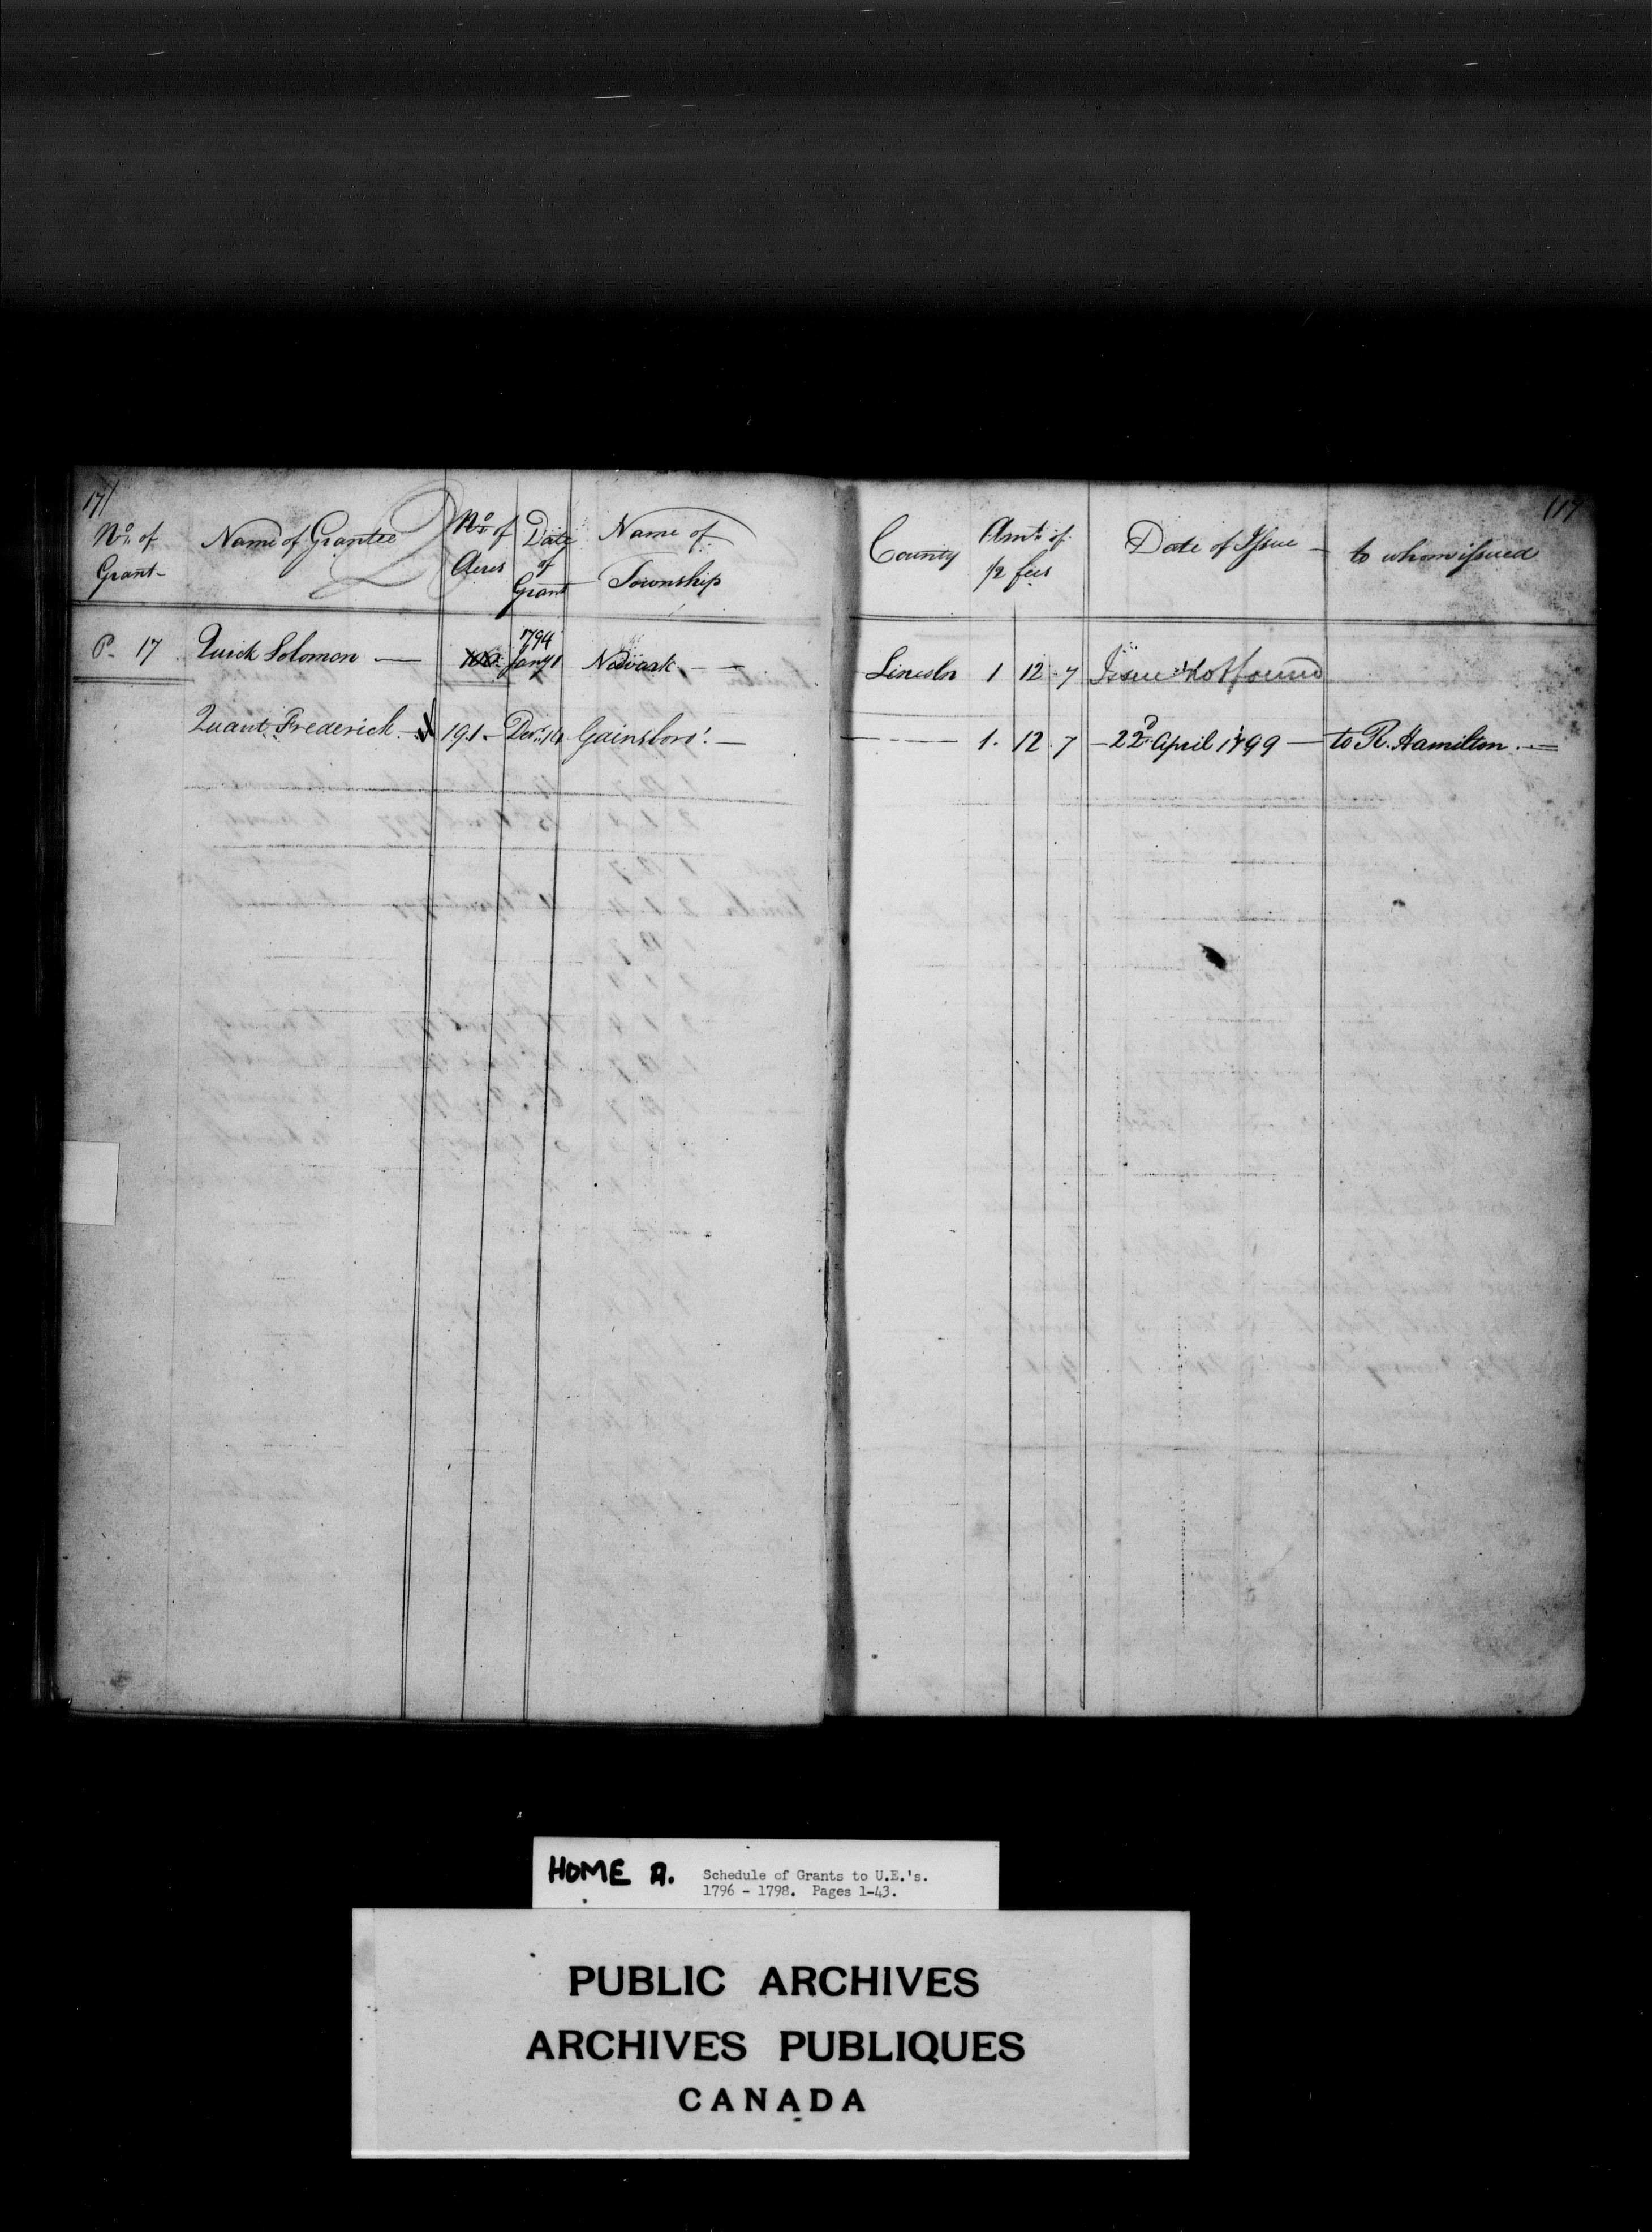 17/
Q
No. of Grant- Name of Grantee No. of Acres Date of Grant Name of Township
P- 17 Quick Solomon — 100 1794 Jany 1 Newark — —
Quant Frederick — 191 - Decr. Gainsboro'. —
(17
County Amt. of 1/2 fees Date of Issue — to whom issued
Lincoln 1 12 7 Issue not found
— — 1. 12 7 — 22d. April 1799 — to R. Hamilton. —
HOME A. Schedule of Grants to U.E.'s.
1796 - 1798. Pages 1-43.
PUBLIC ARCHIVES
ARCHIVES PUBLIQUES
CANADA